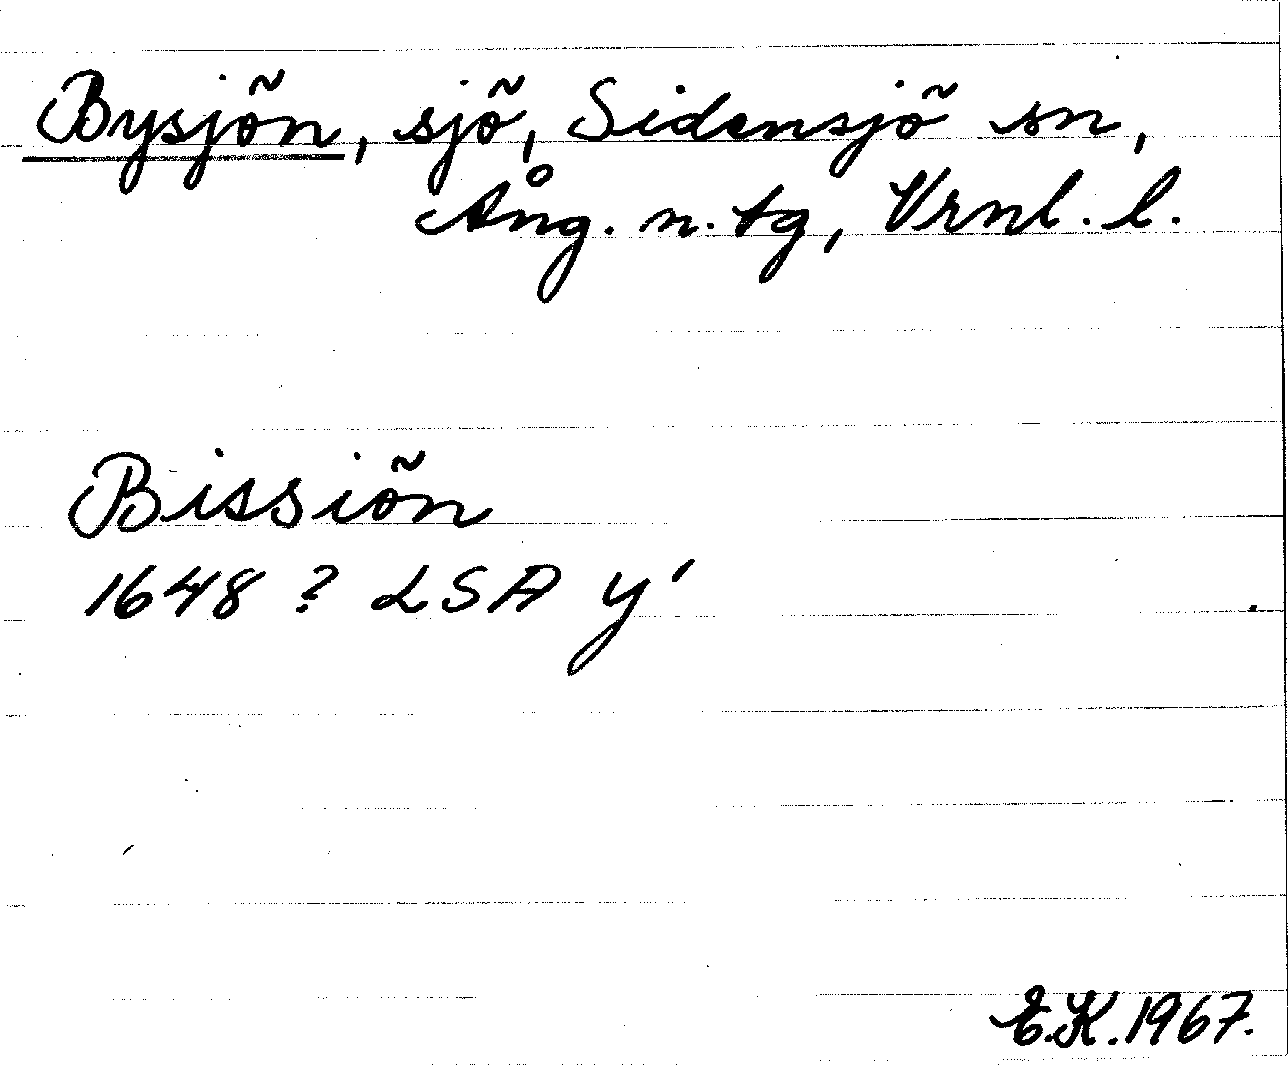 Bysjön, sjö, Sidensjö sn,
Ång. n. tg, Vrnl. l.
Bissiön
1648 ? LSA Y'
E.K. 1967.